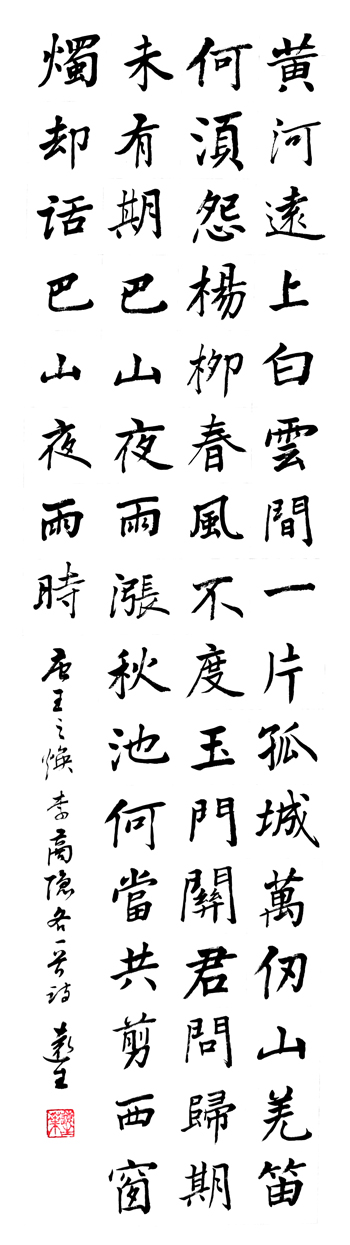 黄河遠上白雲間一片孤城萬仞山羌笛
何須怨楊柳春風不度玉門關君問歸期
未有期巴山夜雨漲秋池何當共剪西窗
燭却話巴山夜雨時
唐王之焕李商隐各一首诗